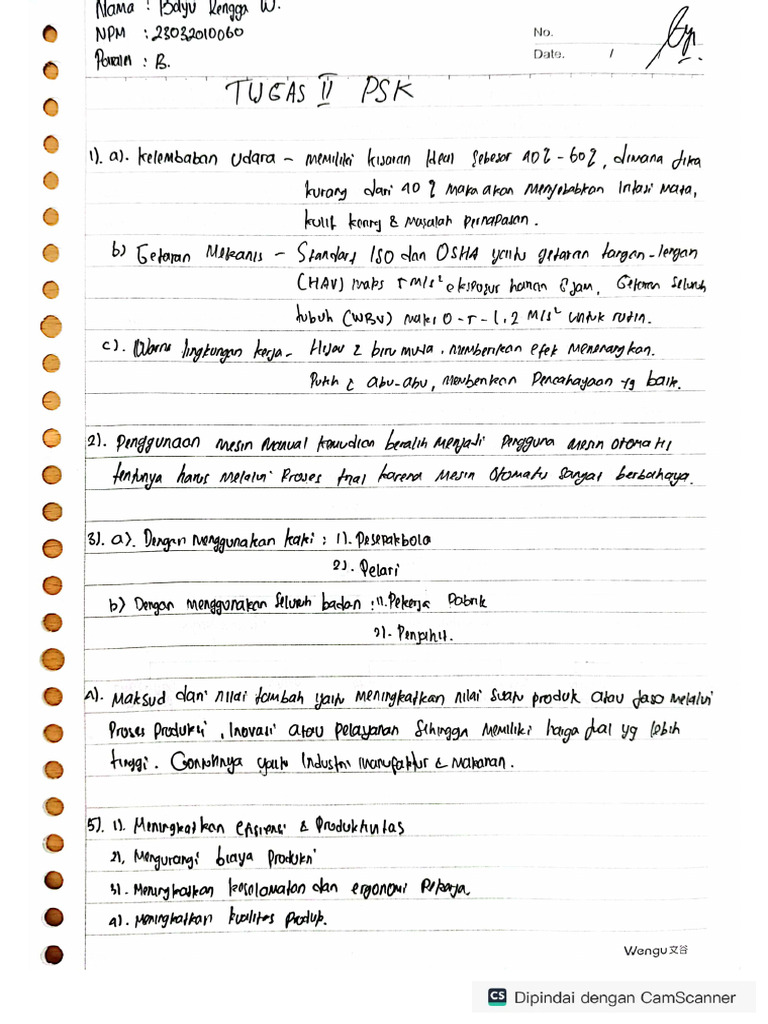 Nama : Bayu Rengga W.
NPM : 23032010060
Paralel : B.
No.
Date. /
TUGAS II PSK
1). a). Kelembaban Udara - memiliki kisaran Ideal sebesar 40% - 60%, dimana jika
kurang dari 40 % maka akan menyebabkan Iritasi Mata,
kulit kering & Masalah Pernapasan.
b) Getaran Mekanis - Standart ISO dan OSHA yaitu getaran tangan-lengan
(HAV) maks 5 M/s² eksposur harian 8 jam, Getaran Seluruh
tubuh (WBV) maks 0-5-1,2 M/s² untuk rutin.
c). Warna lingkungan kerja - Hijau & biru muda, memberikan efek menenangkan.
Putih & abu-abu, memberikan Pencahayaan yg baik.
2). Penggunaan mesin manual kemudian beralih menjadi pengguna mesin otomatis
tentunya harus melalui Proses trial karena mesin otomatis sangat berbahaya.
3). a). Dengan menggunakan kaki : 1). Pesepakbola
2). Pelari
b) Dengan menggunakan Seluruh badan : 1). Pekerja Pabrik
2)- Penjahit.
4). Maksud dari nilai tambah yaitu meningkatkan nilai suatu produk atau jasa melalui
Proses Produksi, Inovasi atau pelayanan sehingga memiliki harga jual yg lebih
tinggi. Contohnya yaitu Industri manufaktur & makanan.
5). 1). Meningkatkan efisiensi & Produktivitas
2), Mengurangi biaya Produksi
3). Meningkatkan keselamatan dan ergonomi Pekerja.
4). Meningkatkan kualitas Produk.
Wengu 文谷
CS Dipindai dengan CamScanner